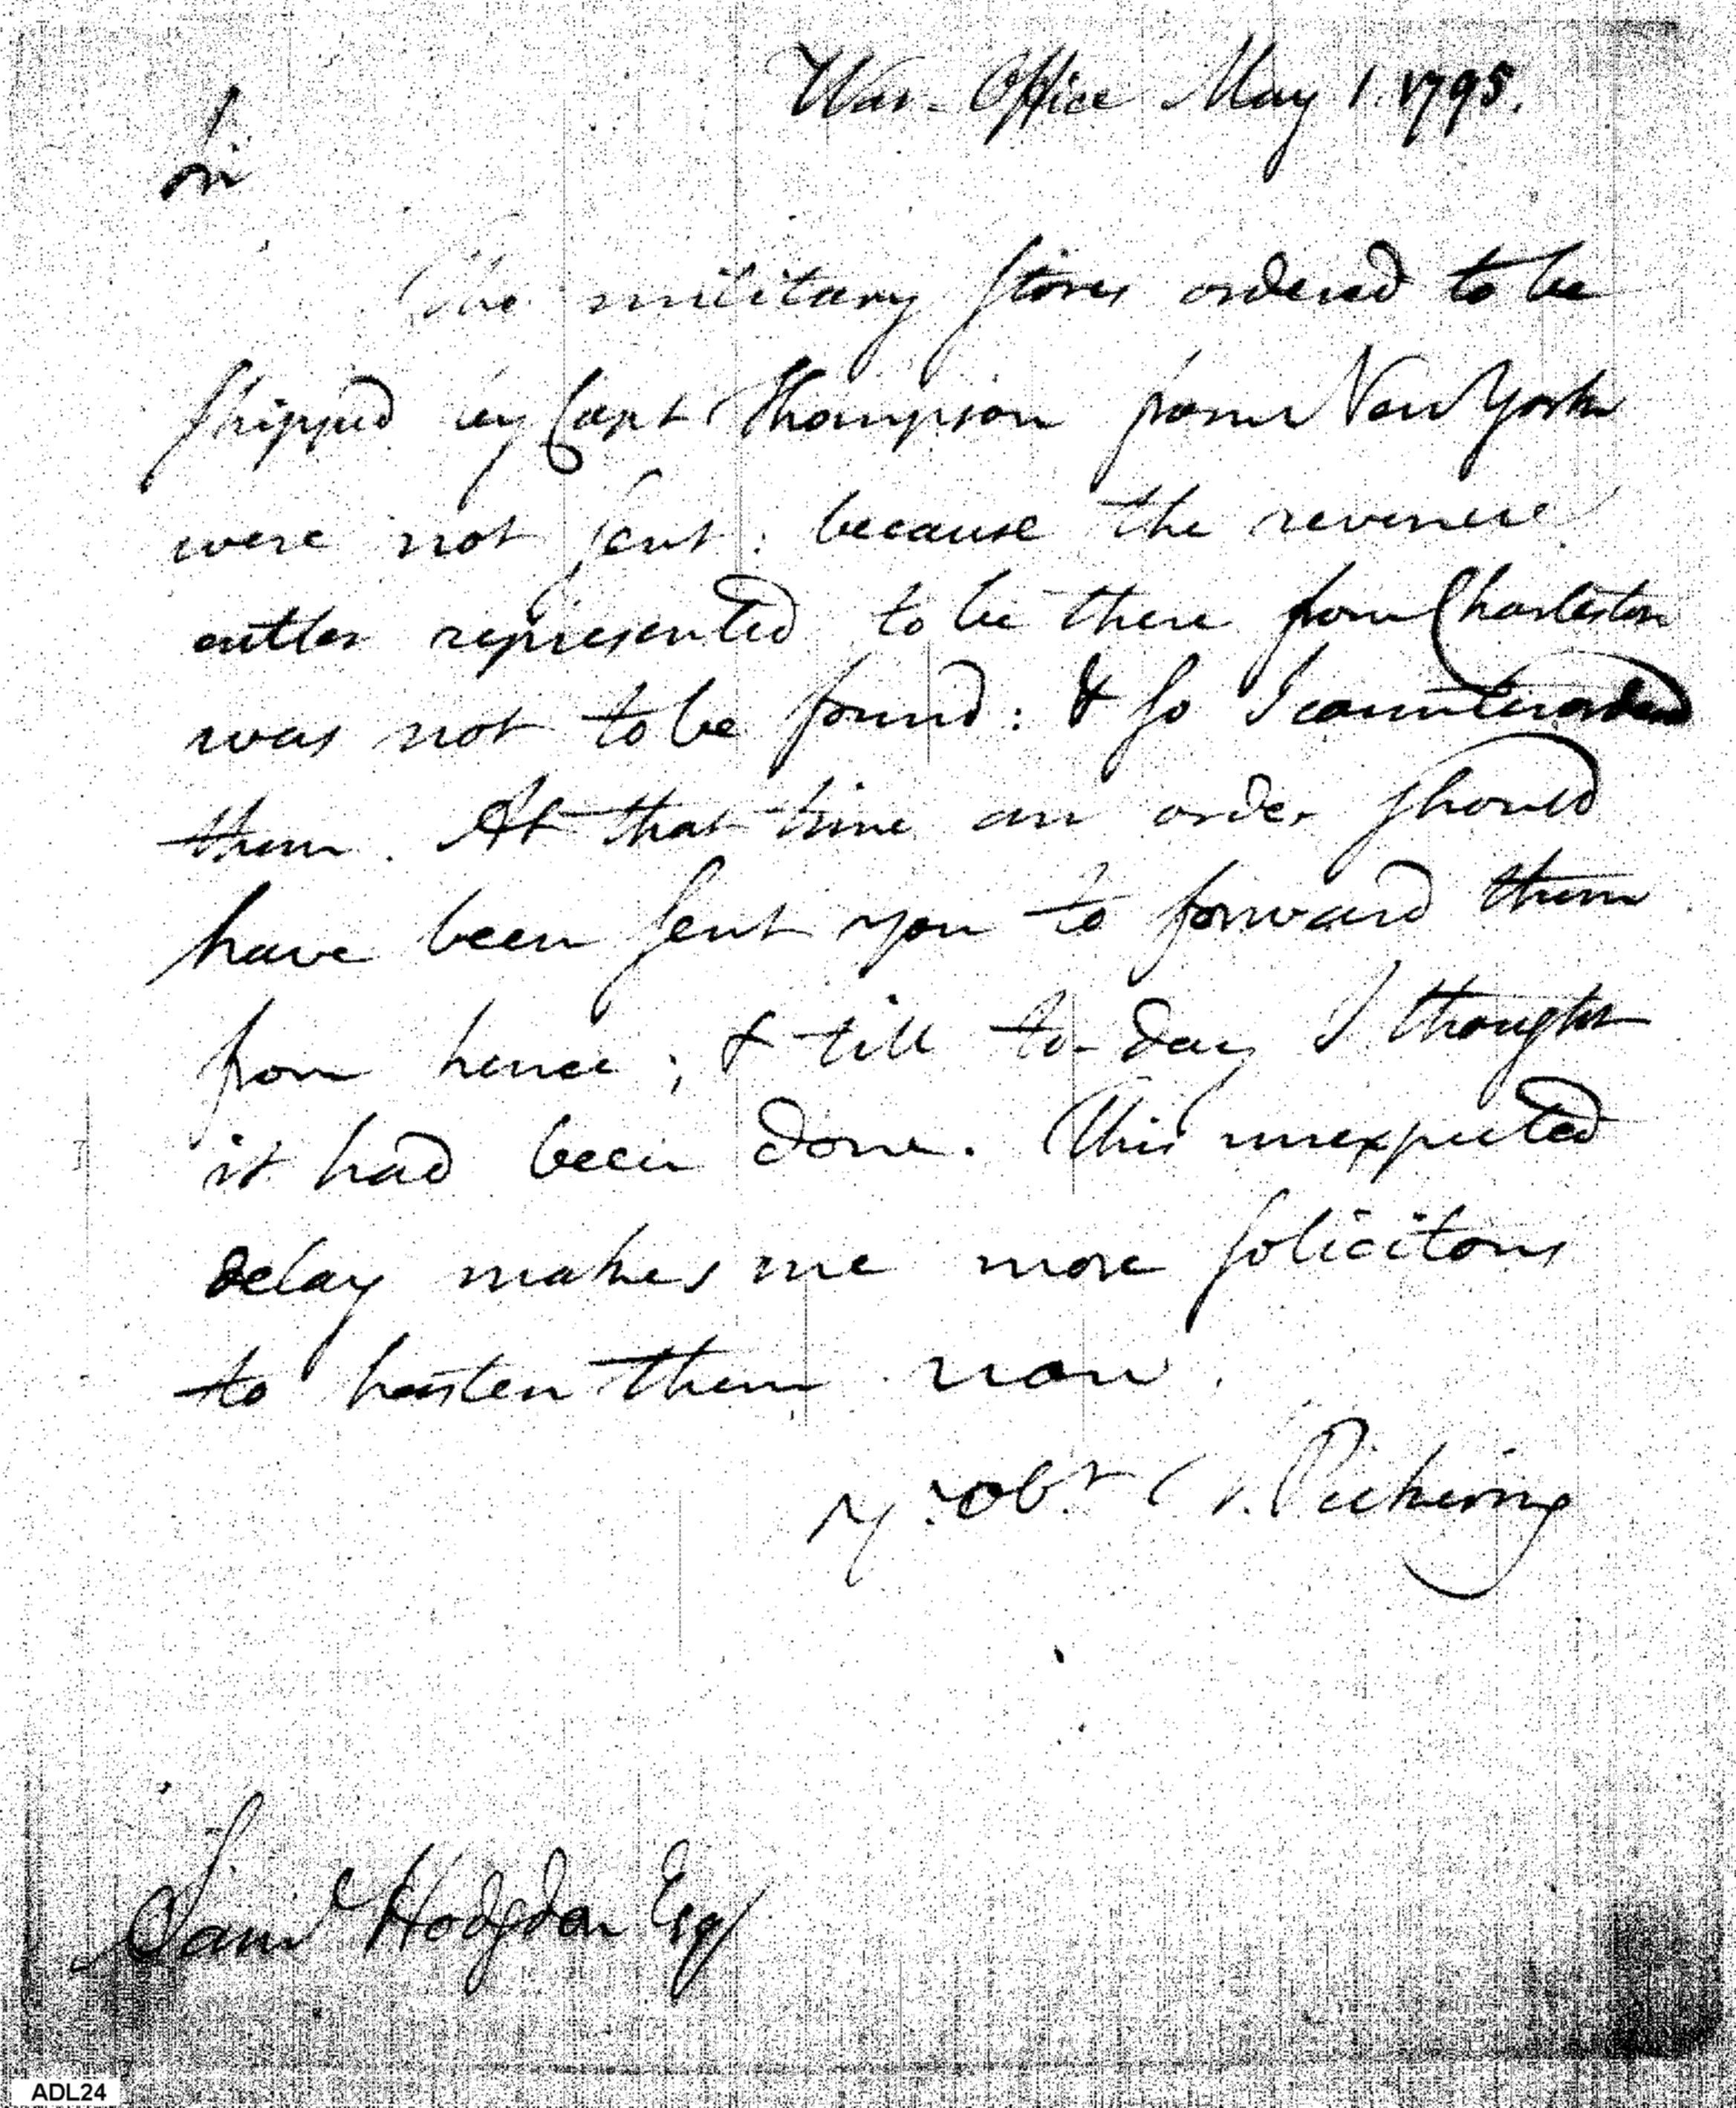 War-Office May 1. 1795.
Sir
The military stores ordered to be
shipped by Capt Thompson from New York
were not sent: because the revenue
cutter represented to be there from Charleston
was not to be found: & so I countermanded
them. At that time an order should
have been sent you to forward them
from hence; & till to-day I thought
it had been done. This unexpected
delay makes me more solicitous
to hasten them now.
Yr. obt. T. Pickering
Saml Hodgdon Esq
ADL24